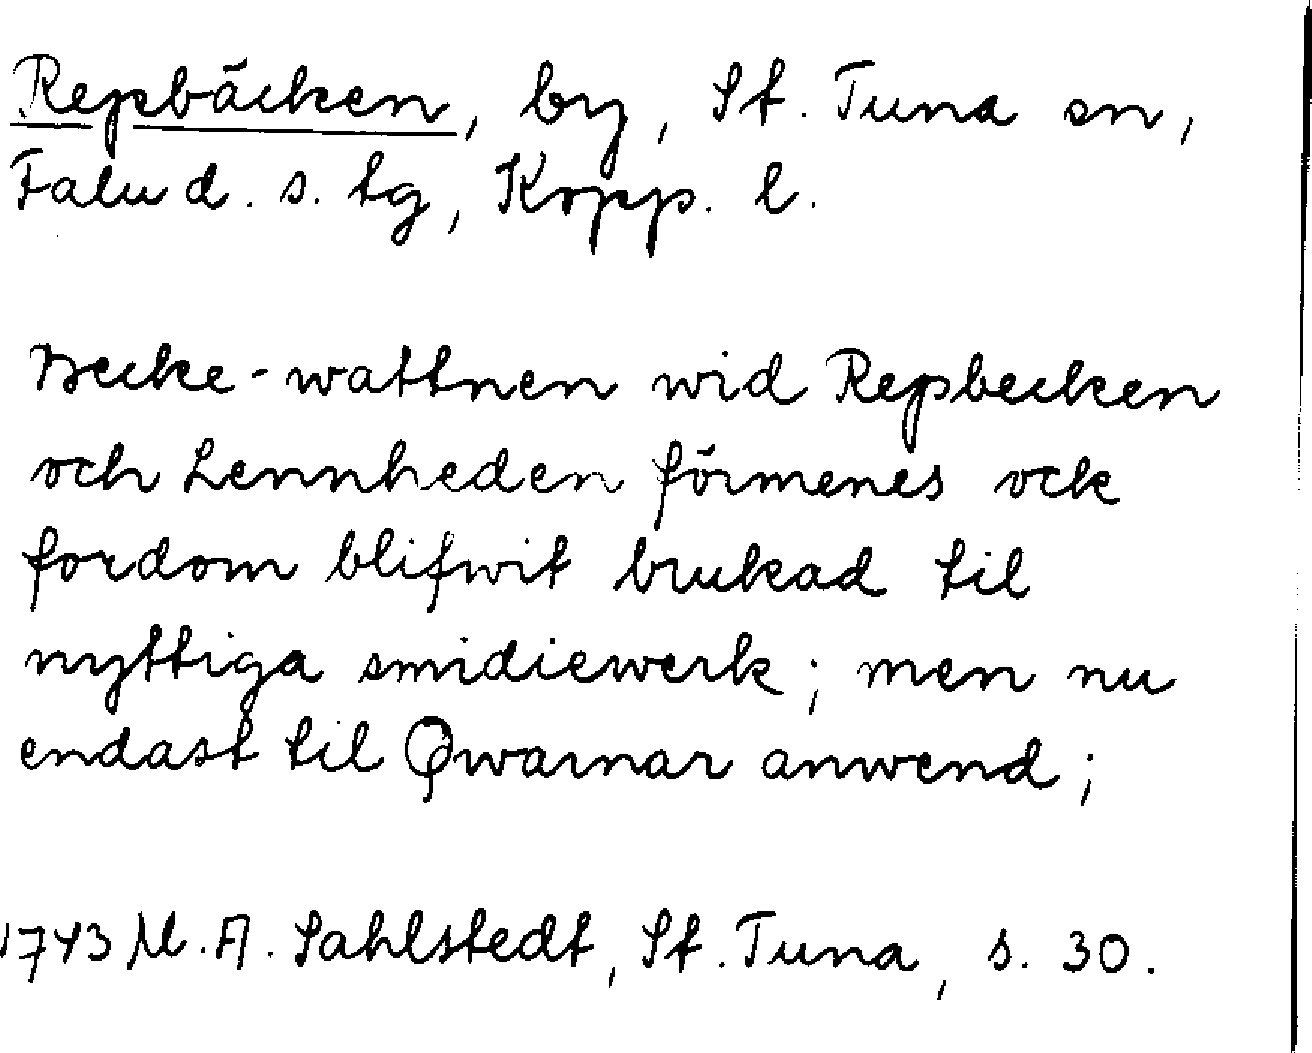 Repbäcken, by, St. Tuna sn,
Falu d. s. tg, Kopp. l.
Becke-wattnen wid Repbecken
och Lennheden förmenes ock
fordom blifwit brukad til
nyttiga smidiewerk; men nu
endast til Qwarnar anwend;
1743 M. A. Sahlstedt, St. Tuna, s. 30.